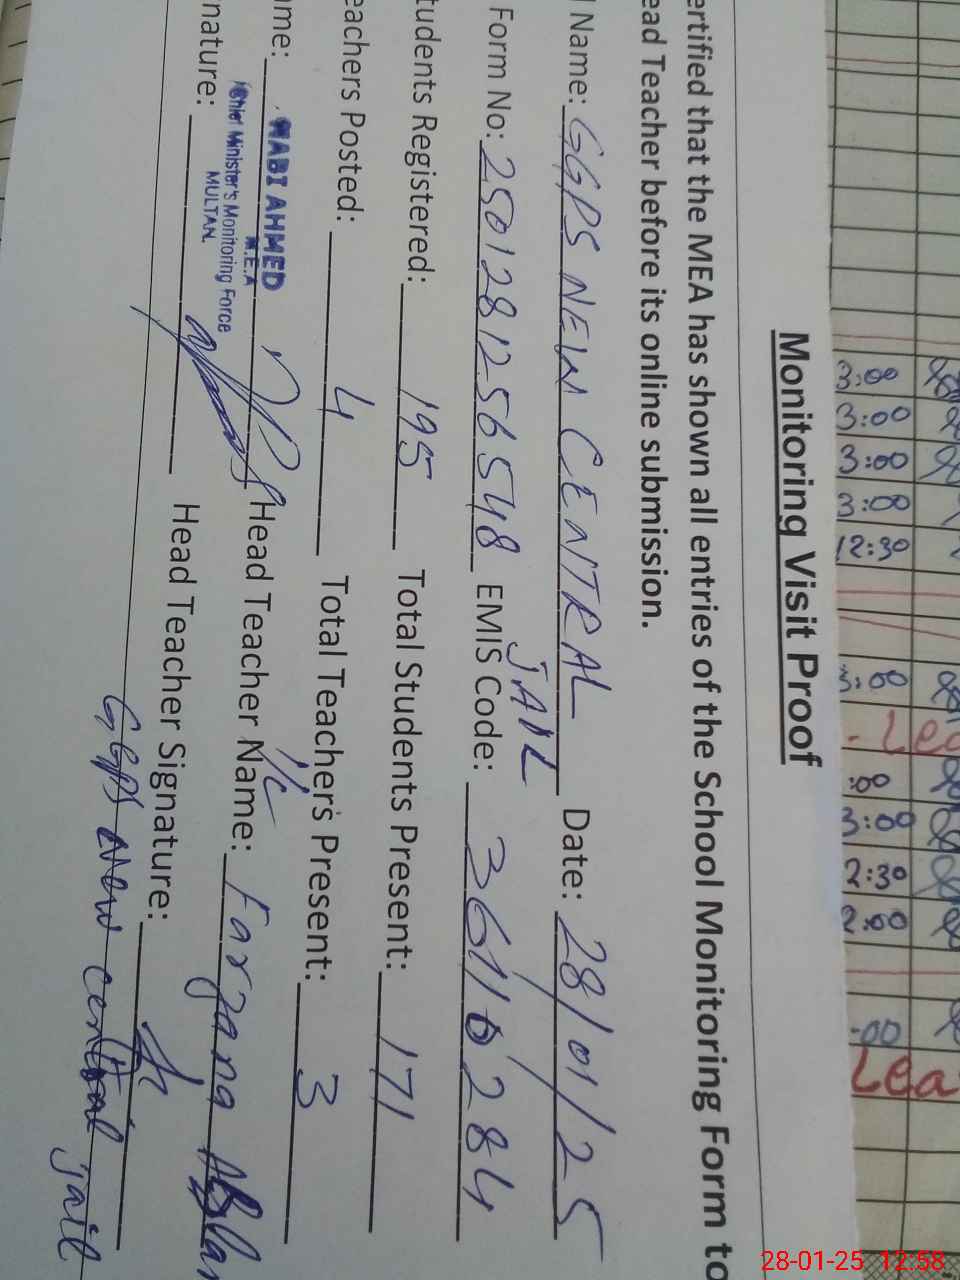 Monitoring Visit Proof
ertified that the MEA has shown all entries of the School Monitoring Form to
ead Teacher before its online submission.
Name: GGPS NEW CENTRAL JAIL Date: 28/01/25
Form No: 2501281256548 EMIS Code: 36110284
tudents Registered: 195 Total Students Present: 171
eachers Posted: 4 Total Teachers Present: 3
me: ABI AHMED Head Teacher Name: Farzana
M.E.A
Chief Minister's Monitoring Force
MULTAN.
nature: Head Teacher Signature:
I/C
GGPS New central Jail
3:00
3:00
3:00
3:00
12:30
3:00
Lea
:00
3:00
2:30
2:00
-00
Lea
28-01-25 12:58